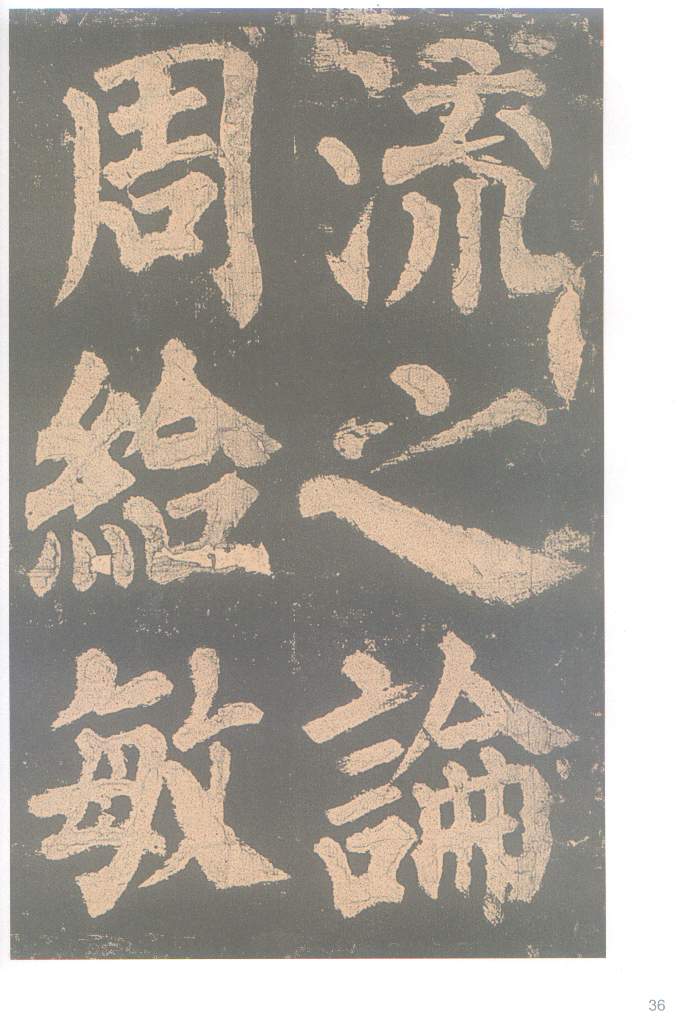 流之論
周給敏
36